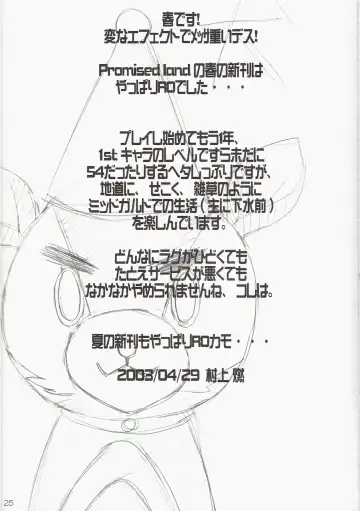 春です!
変なエフェクトでメッサ重いデス!
Promised land の春の新刊は
やっぱりROでした・・・
プレイし始めてもう1年、
1st キャラのレベルですら未だに
54だったりするヘタレっぷりですが、
地道に、せこく、雑草のように
ミッドガルドでの生活(主に下水前)
を楽しんでいます。
どんなにラグがひどくても
たとえサービスが悪くても
なかなかやめられませんね、コレは。
夏の新刊もやっぱりROカモ・・・
2003/04/29 村上 燃
25